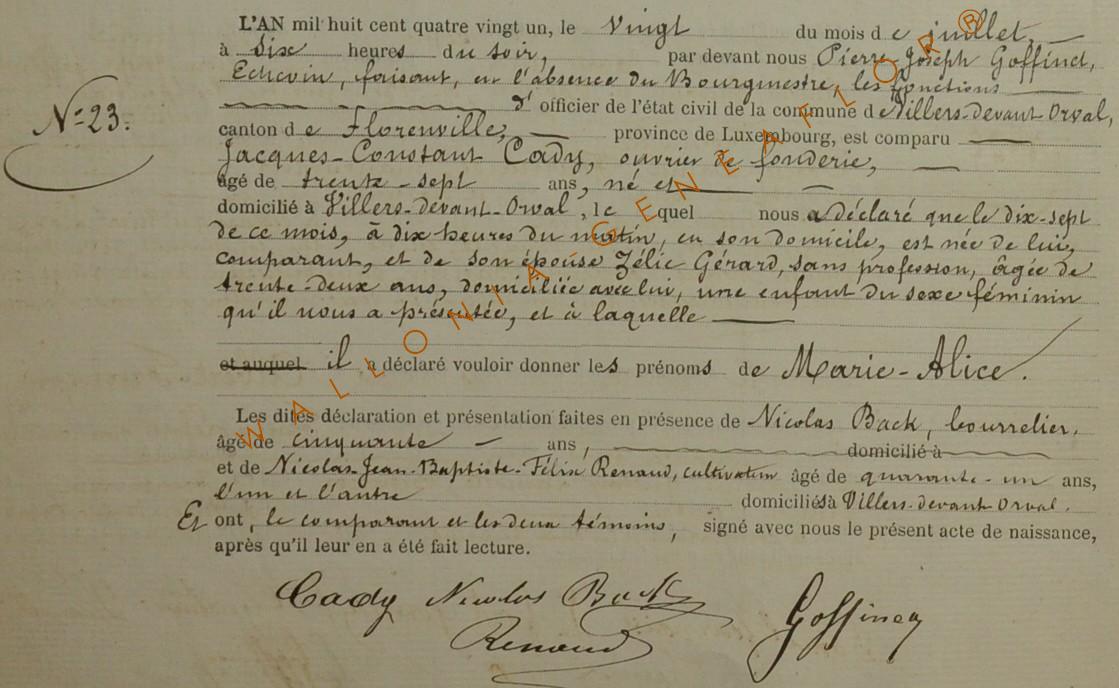 L'AN mil huit cent quatre vingt un, le Vingt du mois de juillet,
à six heures du soir, par devant nous Pierre Joseph Goffinet,
Echevin, faisant, en l'absence du Bourgmestre, les fonctions
d'officier de l'état civil de la commune de Villers-devant-Orval,
N° 23.
canton de Florenville, province de Luxembourg, est comparu
Jacques-Constant Cady, ouvrier de fonderie,
âgé de trente-sept ans, né et
domicilié à Villers-devant-Orval, lequel nous a déclaré que le dix-sept
de ce mois, à dix heures du matin, en son domicile, est née de lui,
comparant, et de son épouse Zélie Gérard, sans profession, âgée de
trente-deux ans, domiciliée avec lui, une enfant du sexe féminin
qu'il nous a présentée, et à laquelle
et auquel il a déclaré vouloir donner les prénoms de Marie-Alice.
Les dites déclaration et présentation faites en présence de Nicolas Back, bourrelier,
âgé de cinquante ans, domicilié à
et de Nicolas-Jean-Baptiste-Félix Renaud, cultivateur âgé de quarante-un ans,
l'un et l'autre domiciliés à Villers-devant-Orval.
Et ont, le comparant et les deux témoins, signé avec nous le présent acte de naissance,
après qu'il leur en a été fait lecture.
Cady Nicolas Back Goffinet
Renaud
WALLONIA GENEAFLOR®